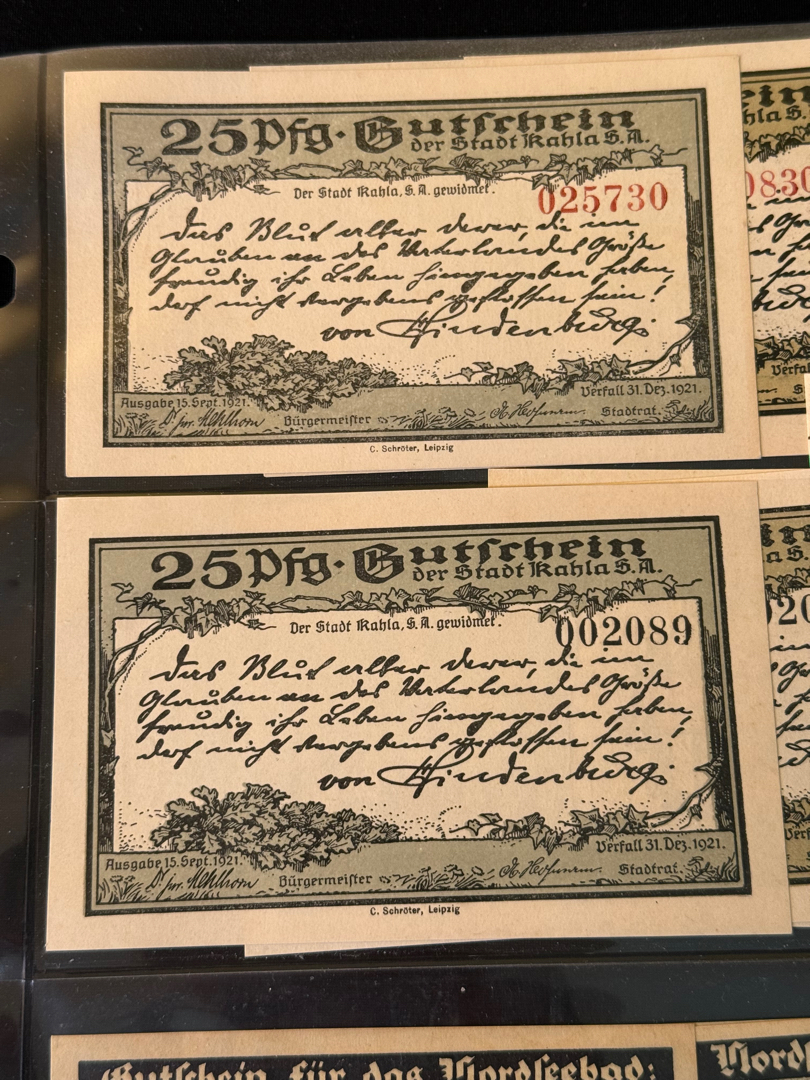 25 Pfg. Gutschein
der Stadt Kahla S.A.
Der Stadt Kahla, S.A. gewidmet.
025730
Das Blut aller derer, die im
Glauben an des Vaterlandes Größe
freudig ihr Leben hingegeben haben,
darf nicht vergebens geflossen sein!
von Hindenburg.
Ausgabe 15. Sept. 1921.
Verfall 31. Dez. 1921.
Bürgermeister
Stadtrat.
C. Schröter, Leipzig
25 Pfg. Gutschein
der Stadt Kahla S.A.
Der Stadt Kahla, S.A. gewidmet.
002089
Das Blut aller derer, die im
Glauben an des Vaterlandes Größe
freudig ihr Leben hingegeben haben,
darf nicht vergebens geflossen sein!
von Hindenburg.
Ausgabe 15. Sept. 1921.
Verfall 31. Dez. 1921.
Bürgermeister
Stadtrat.
C. Schröter, Leipzig
Gutschein für das Nordseebad: